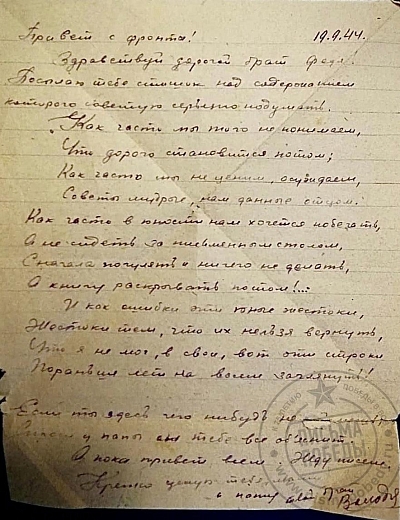 Привет с фронта! 19.9.44.
Здравствуй дорогой брат Федя!
Посылаю тебе стишок над содержанием
которого советую серьезно подумать.
"Как часто мы того не понимаем,
Что дорого становится потом;
Как часто мы не ценим, осуждаем,
Советы мудрые, нам данные отцом.
Как часто в юности нам хочется побегать,
А не сидеть за письменным столом,
Сначала погулять и ничего не делать,
А книгу раскрывать потом!...
И как ошибки эти юные жестоки,
Жестоки тем, что их нельзя вернуть,
Что я не мог, в свои, вот эти строки
Пораньше лет на восемь заглянуть!
Если ты здесь чего нибудь не
у папы он тебе все объяснит.
А пока привет всем. Жду писем.
Крепко целую тебя,
и папу Брат
Володя
ПИСЬМА ПОБЕДЫ